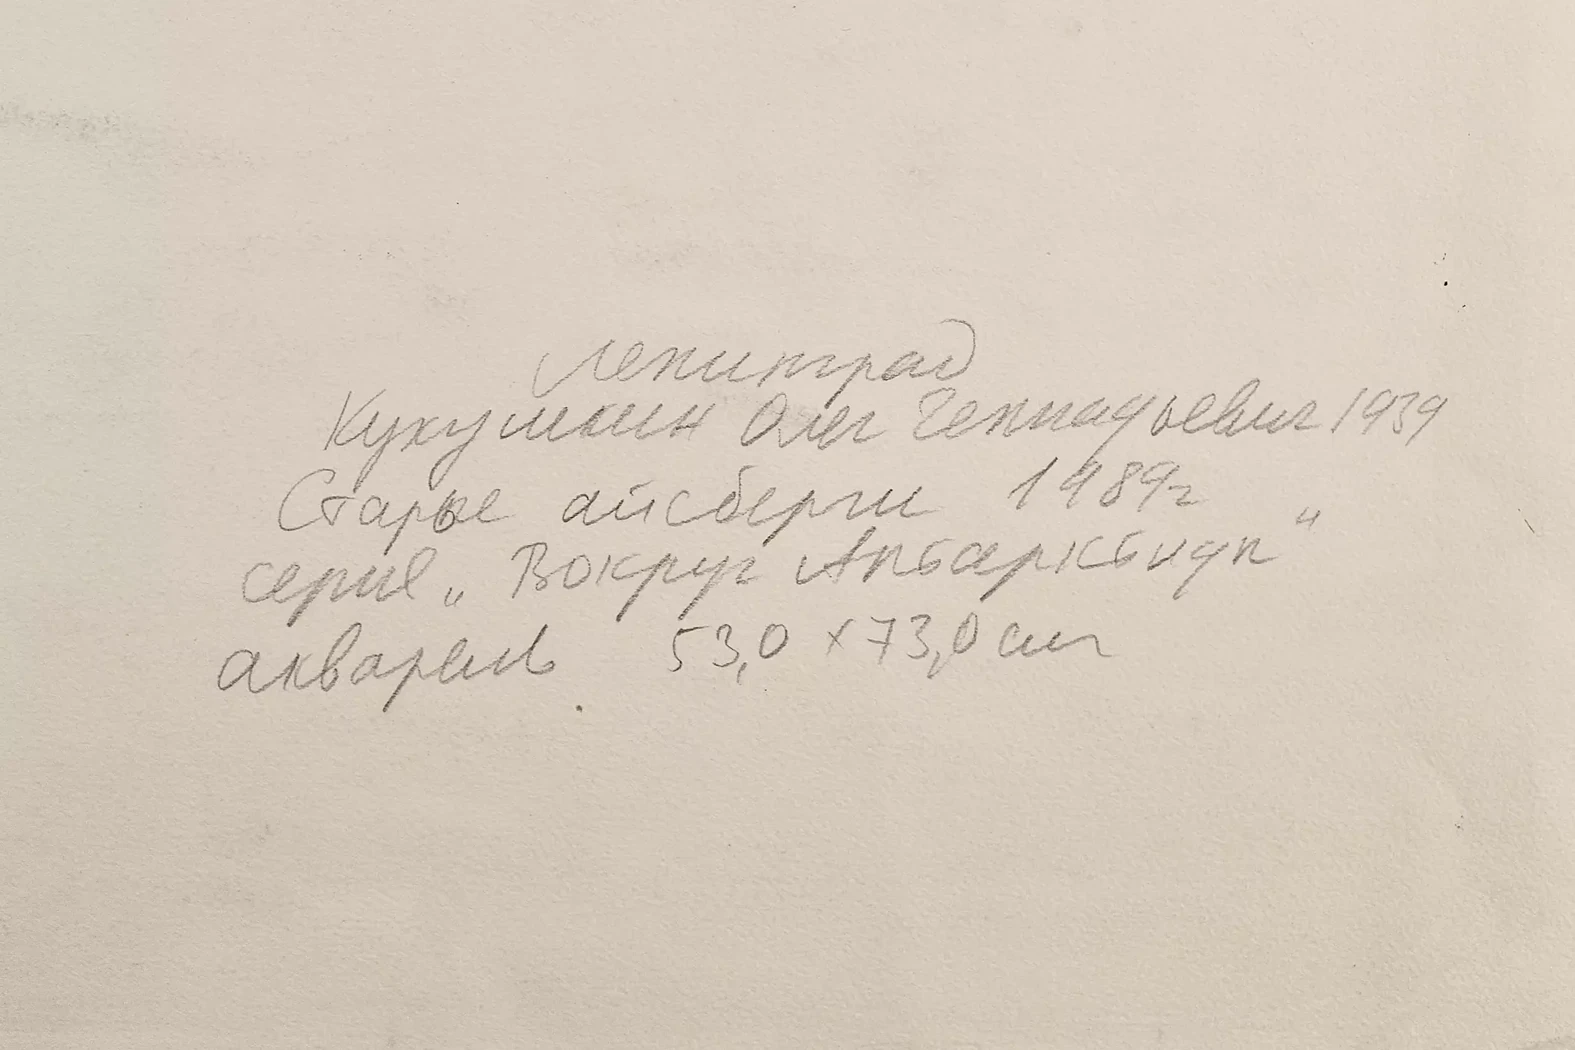 Ленинград
Кукушкин Олег Геннадьевич 1939
Старые айсберги 1989г
серия „Вокруг Антарктиды"
акварель 53,0 х 73,0 см